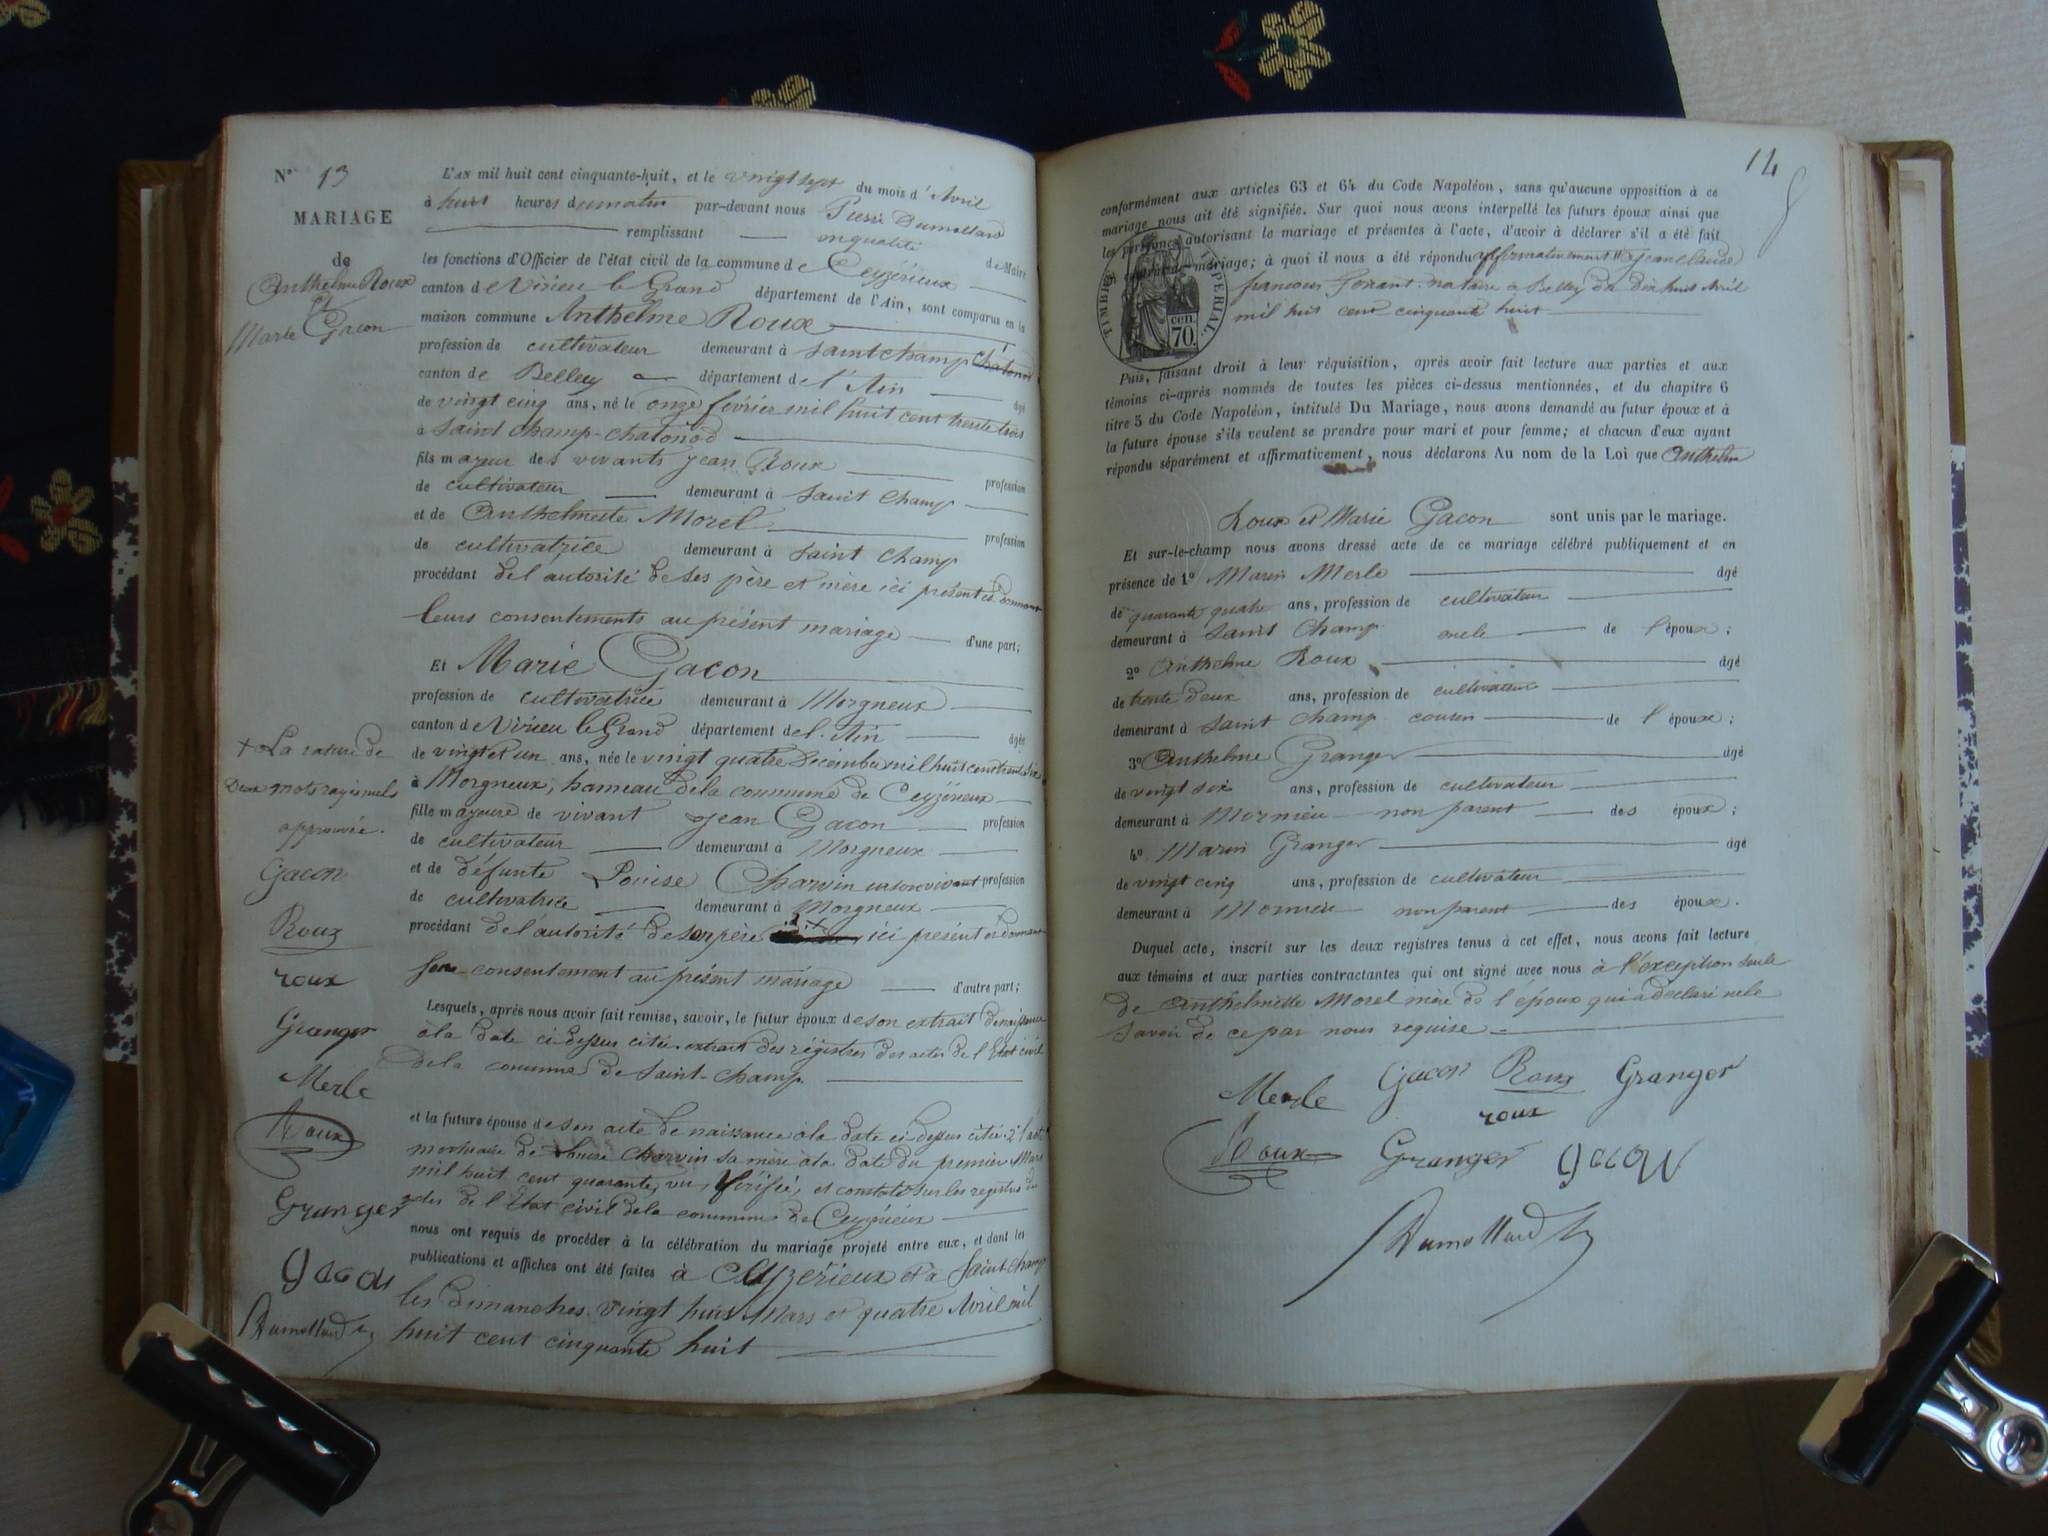 N° 13
MARIAGE
de
Anthelme Roux
et
Marie Gacon
L'AN mil huit cent cinquante-huit, et le vingt sept du mois d'Avril
à huit heures du matin par-devant nous Pierre Dumollard
remplissant en qualité de Maire
les fonctions d'Officier de l'état civil de la commune de Ceyzérieux
canton de Virieu le Grand département de l'Ain, sont comparus en la
maison commune Anthelme Roux
profession de cultivateur demeurant à Saint champ Chatonod
canton de Belley département de l'Ain âgé
de vingt cinq ans, né le onze février mil huit cent trente trois
à Saint champ-chatonod
fils majeur des vivants Jean Roux profession
de cultivateur demeurant à Saint Champ
et de Anthelmette Morel profession
de cultivatrice demeurant à Saint Champ
procédant de l'autorité de ses père et mère ici présents et donnant
leurs consentements au présent mariage d'une part;
Et Marie Gacon
profession de cultivatrice demeurant à Morgneux
canton de Virieu le Grand département de l'Ain âgée
de vingt et un ans, née le vingt quatre Décembre mil huit cent trente six
à Morgneux, hameau de la commune de Ceyzérieux
fille majeure de vivant Jean Gacon profession
de cultivateur demeurant à Morgneux
et de défunte Louise Charvin en son vivant profession
de cultivatrice demeurant à Morgneux
procédant de l'autorité de son père ici présent et donnant
son consentement au présent mariage d'autre part;
Lesquels, après nous avoir fait remise, savoir, le futur époux de son extrait de naissance
à la date ci dessus citée extrait des régistres des actes de l'Etat civil
de la commune de Saint-Champ
et la future épouse de son acte de naissance à la date ci dessus citée 2° l'acte
mortuaire de Louise Charvin sa mère à la date du premier Mars
mil huit cent quarante, vu, vérifié, et constaté sur les registres des
actes de l'Etat civil de la commune de Ceyzérieux
nous ont requis de procéder à la célébration du mariage projeté entre eux, et dont les
publications et affiches ont été faites à Ceyzérieux et à Saint Champ
les dimanches vingt huit Mars et quatre Avril mil
huit cent cinquante huit
+ La rature de
Deux mots rayés nuls
approuvée.
Gacon
Roux
roux
Granger
Merle
Roux
Granger
gacon
Dumollard
14
conformément aux articles 63 et 64 du Code Napoléon, sans qu'aucune opposition à ce
mariage nous ait été signifiée. Sur quoi nous avons interpellé les futurs époux ainsi que
les personnes autorisant le mariage et présentes à l'acte, d'avoir à déclarer s'il a été fait
contrat de mariage; à quoi il nous a été répondu affirmativement Jean claude
francois notaire à Belley du Dix huit Avril
mil huit cent cinquante huit
TIMBRE IMPERIAL
70 cen.
Puis, faisant droit à leur réquisition, après avoir fait lecture aux parties et aux
témoins ci-après nommés de toutes les pièces ci-dessus mentionnées, et du chapitre 6
titre 5 du Code Napoléon, intitulé Du Mariage, nous avons demandé au futur époux et à
la future épouse s'ils veulent se prendre pour mari et pour femme; et chacun d'eux ayant
répondu séparément et affirmativement, nous déclarons Au nom de la Loi que Anthelme
Roux et Marie Gacon sont unis par le mariage.
Et sur-le-champ nous avons dressé acte de ce mariage célébré publiquement et en
présence de 1° Marin Merle âgé
de quarante quatre ans, profession de cultivateur
demeurant à Saint Champ oncle de l'époux;
2° Anthelme Roux âgé
de trente deux ans, profession de cultivateur
demeurant à Saint Champ cousin de l'époux;
3° Anthelme Granger âgé
de vingt six ans, profession de cultivateur
demeurant à Mornieu non parent des époux;
4° Marin Granger âgé
de vingt cinq ans, profession de cultivateur
demeurant à Mornieu non parent des époux.
Duquel acte, inscrit sur les deux registres tenus à cet effet, nous avons fait lecture
aux témoins et aux parties contractantes qui ont signé avec nous à l'exception seule
de Anthelmette Morel mère de l'époux qui a déclaré ne le
savoir de ce par nous requise
Merle Gacon Roux Granger
roux
Roux Granger gacon
Dumollard